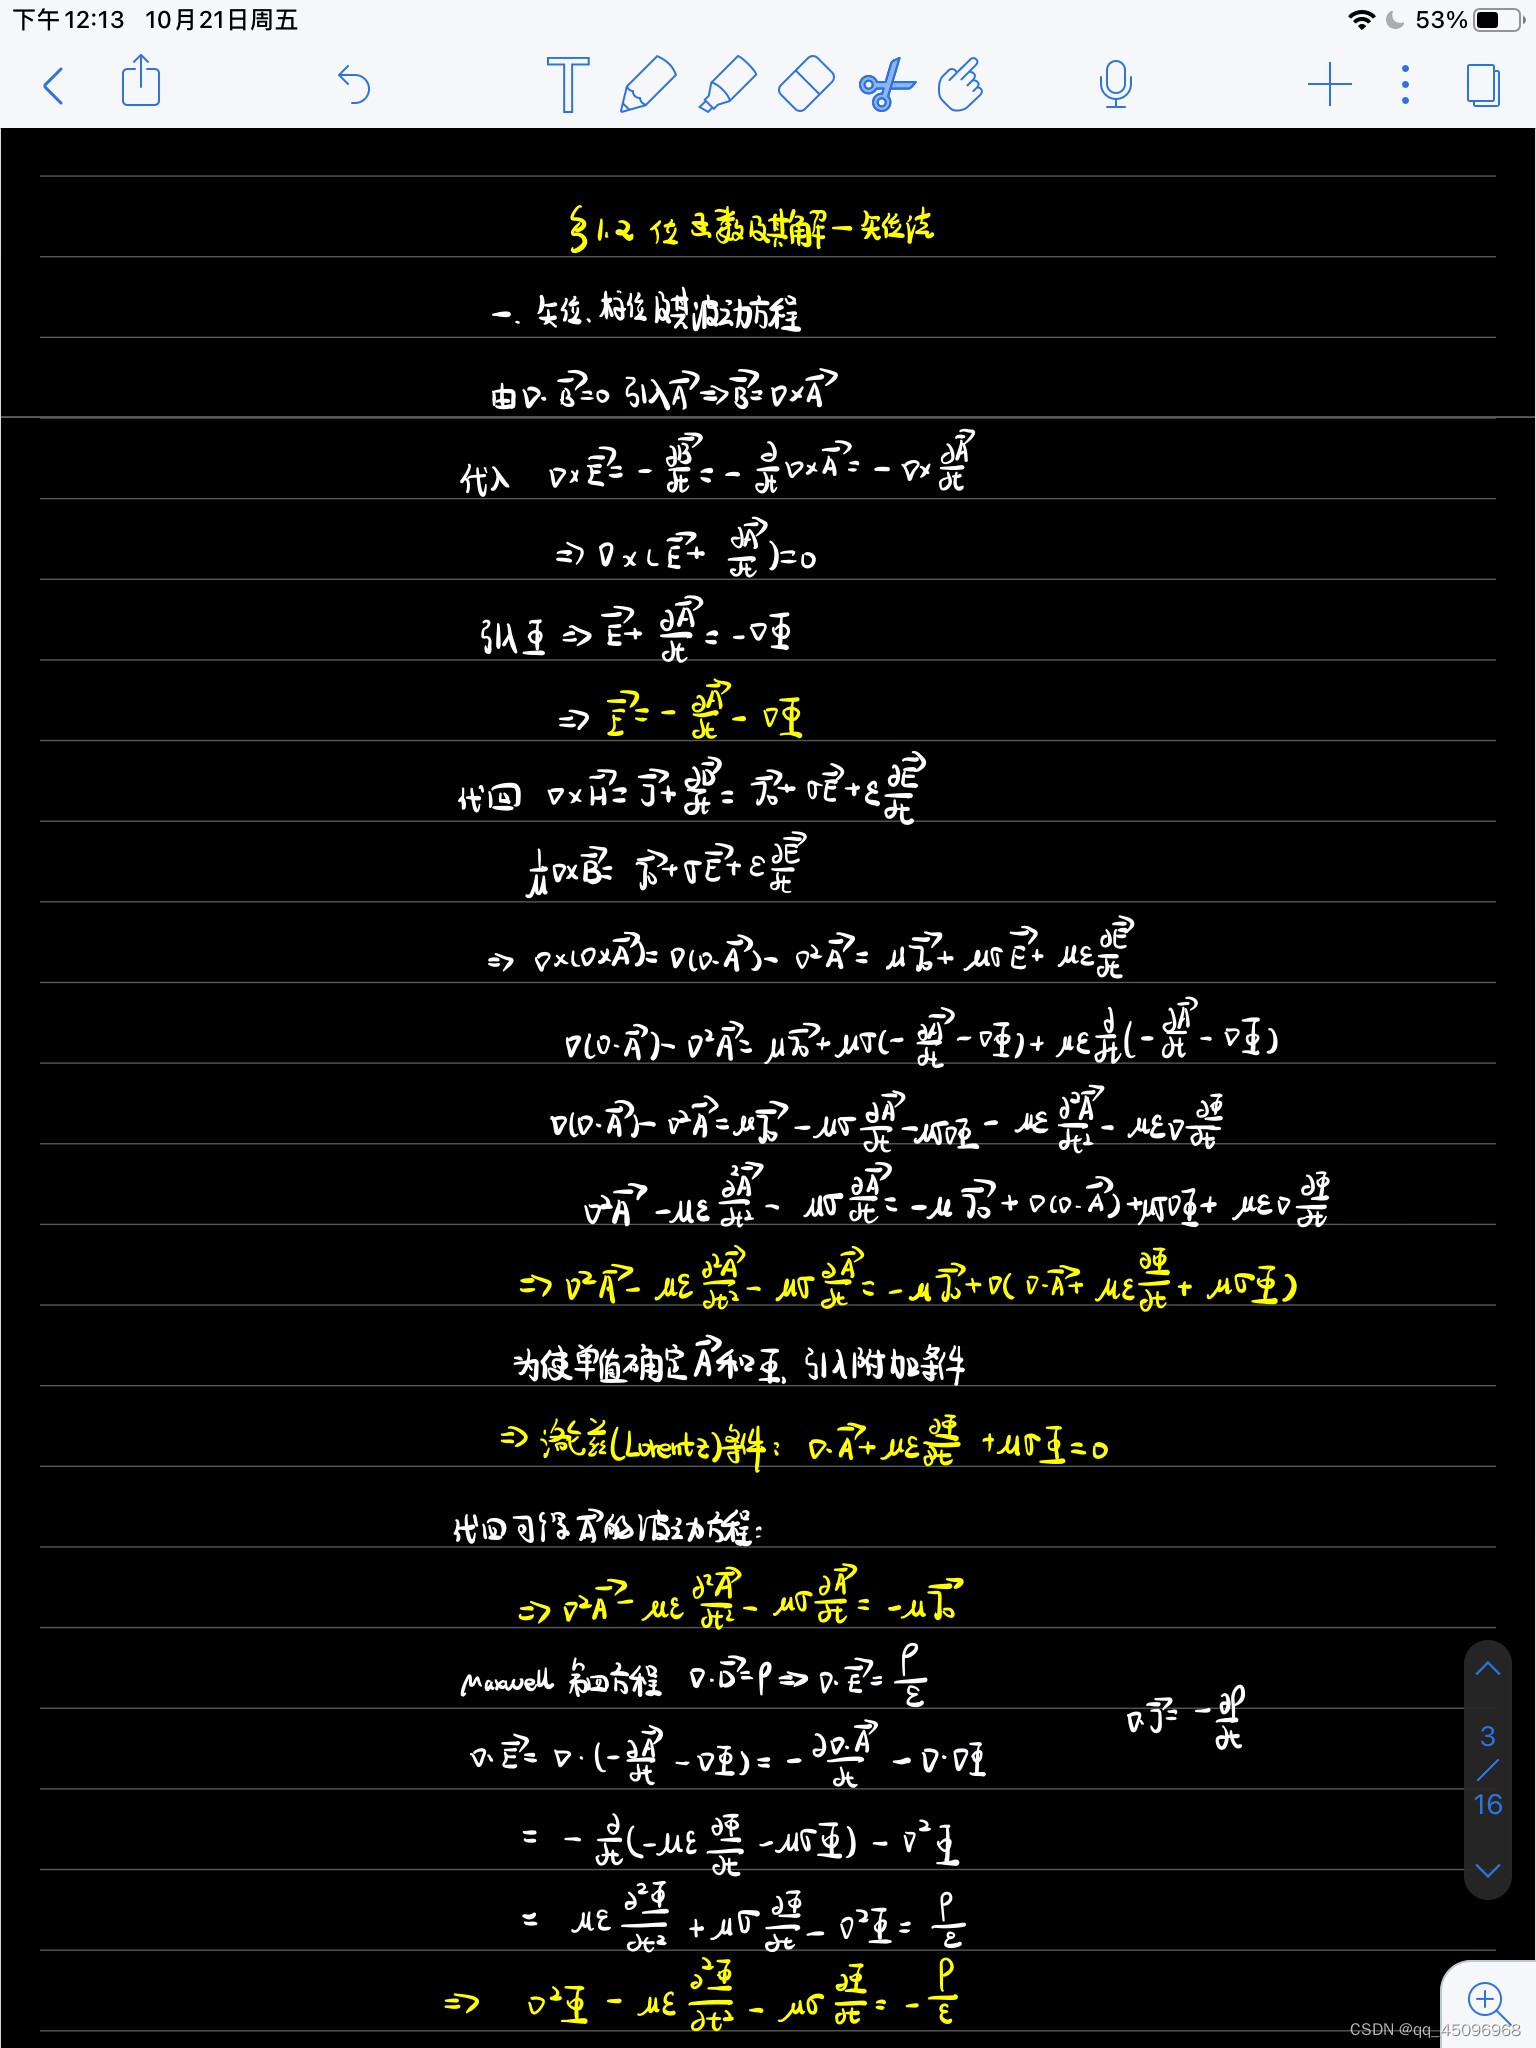 下午12:13 10月21日周五
53%
§1.2 位函数及其解一矢位法
一. 矢位、标位及其波动方程
由∇·B⃗=0 引入A⃗⇒B⃗=∇×A⃗
代入 ∇×E⃗=-∂B⃗/∂t=-∂/∂t ∇×A⃗=-∇×∂A⃗/∂t
⇒∇×(E⃗+∂A⃗/∂t)=0
引入Φ⇒E⃗+∂A⃗/∂t=-∇Φ
⇒E⃗=-∂A⃗/∂t-∇Φ
代回 ∇×H⃗=J⃗+∂D⃗/∂t=J⃗₀+σE⃗+ε∂E⃗/∂t
1/μ ∇×B⃗=J⃗₀+σE⃗+ε∂E⃗/∂t
⇒∇×(∇×A⃗)=∇(∇·A⃗)-∇²A⃗=μJ⃗₀+μσE⃗+με∂E⃗/∂t
∇(∇·A⃗)-∇²A⃗=μJ⃗₀+μσ(-∂A⃗/∂t-∇Φ)+με∂/∂t(-∂A⃗/∂t-∇Φ)
∇(∇·A⃗)-∇²A⃗=μJ⃗₀-μσ∂A⃗/∂t-μσ∇Φ-με∂²A⃗/∂t²-με∇∂Φ/∂t
∇²A⃗-με∂²A⃗/∂t²-μσ∂A⃗/∂t=-μJ⃗₀+∇(∇·A⃗)+μσ∇Φ+με∇∂Φ/∂t
⇒∇²A⃗-με∂²A⃗/∂t²-μσ∂A⃗/∂t=-μJ⃗₀+∇(∇·A⃗+με∂Φ/∂t+μσΦ)
为使单值确定A⃗和Φ, 引入附加条件
⇒洛伦兹(Lorentz)条件: ∇·A⃗+με∂Φ/∂t+μσΦ=0
代回可得A⃗的波动方程:
⇒∇²A⃗-με∂²A⃗/∂t²-μσ∂A⃗/∂t=-μJ⃗₀
Maxwell 第四方程 ∇·D⃗=ρ⇒∇·E⃗=ρ/ε
∇·J⃗=-∂ρ/∂t
∇·E⃗=∇·(-∂A⃗/∂t-∇Φ)=-∂∇·A⃗/∂t-∇·∇Φ
=-∂/∂t(-με∂Φ/∂t-μσΦ)-∇²Φ
=με∂²Φ/∂t²+μσ∂Φ/∂t-∇²Φ=ρ/ε
⇒∇²Φ-με∂²Φ/∂t²-μσ∂Φ/∂t=-ρ/ε
3
/
16
CSDN @qq_45096968